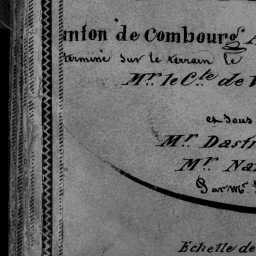 anton de Combourg
terminé sur le terrain le
Mr. le Cte de V
et sous
Mr. Dast
Mr. Na
Par Mr.
Echelle de